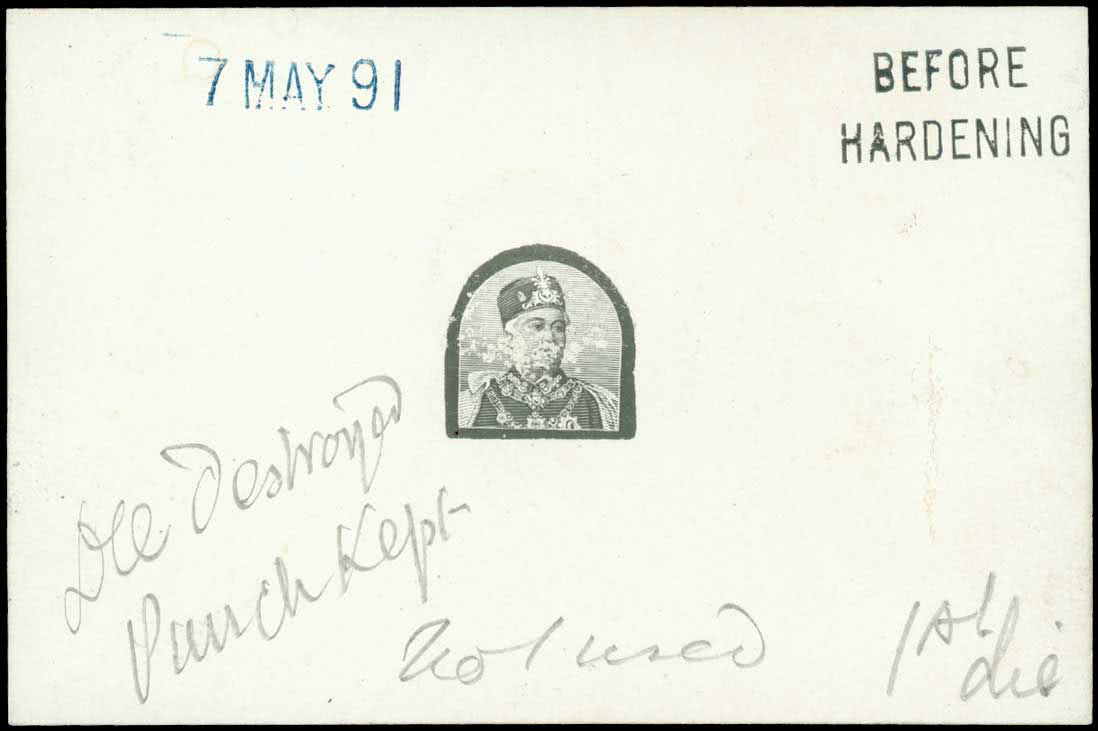 7 MAY 91
BEFORE
HARDENING
Die Destroyed
Punch Kept
Not used
1st
die